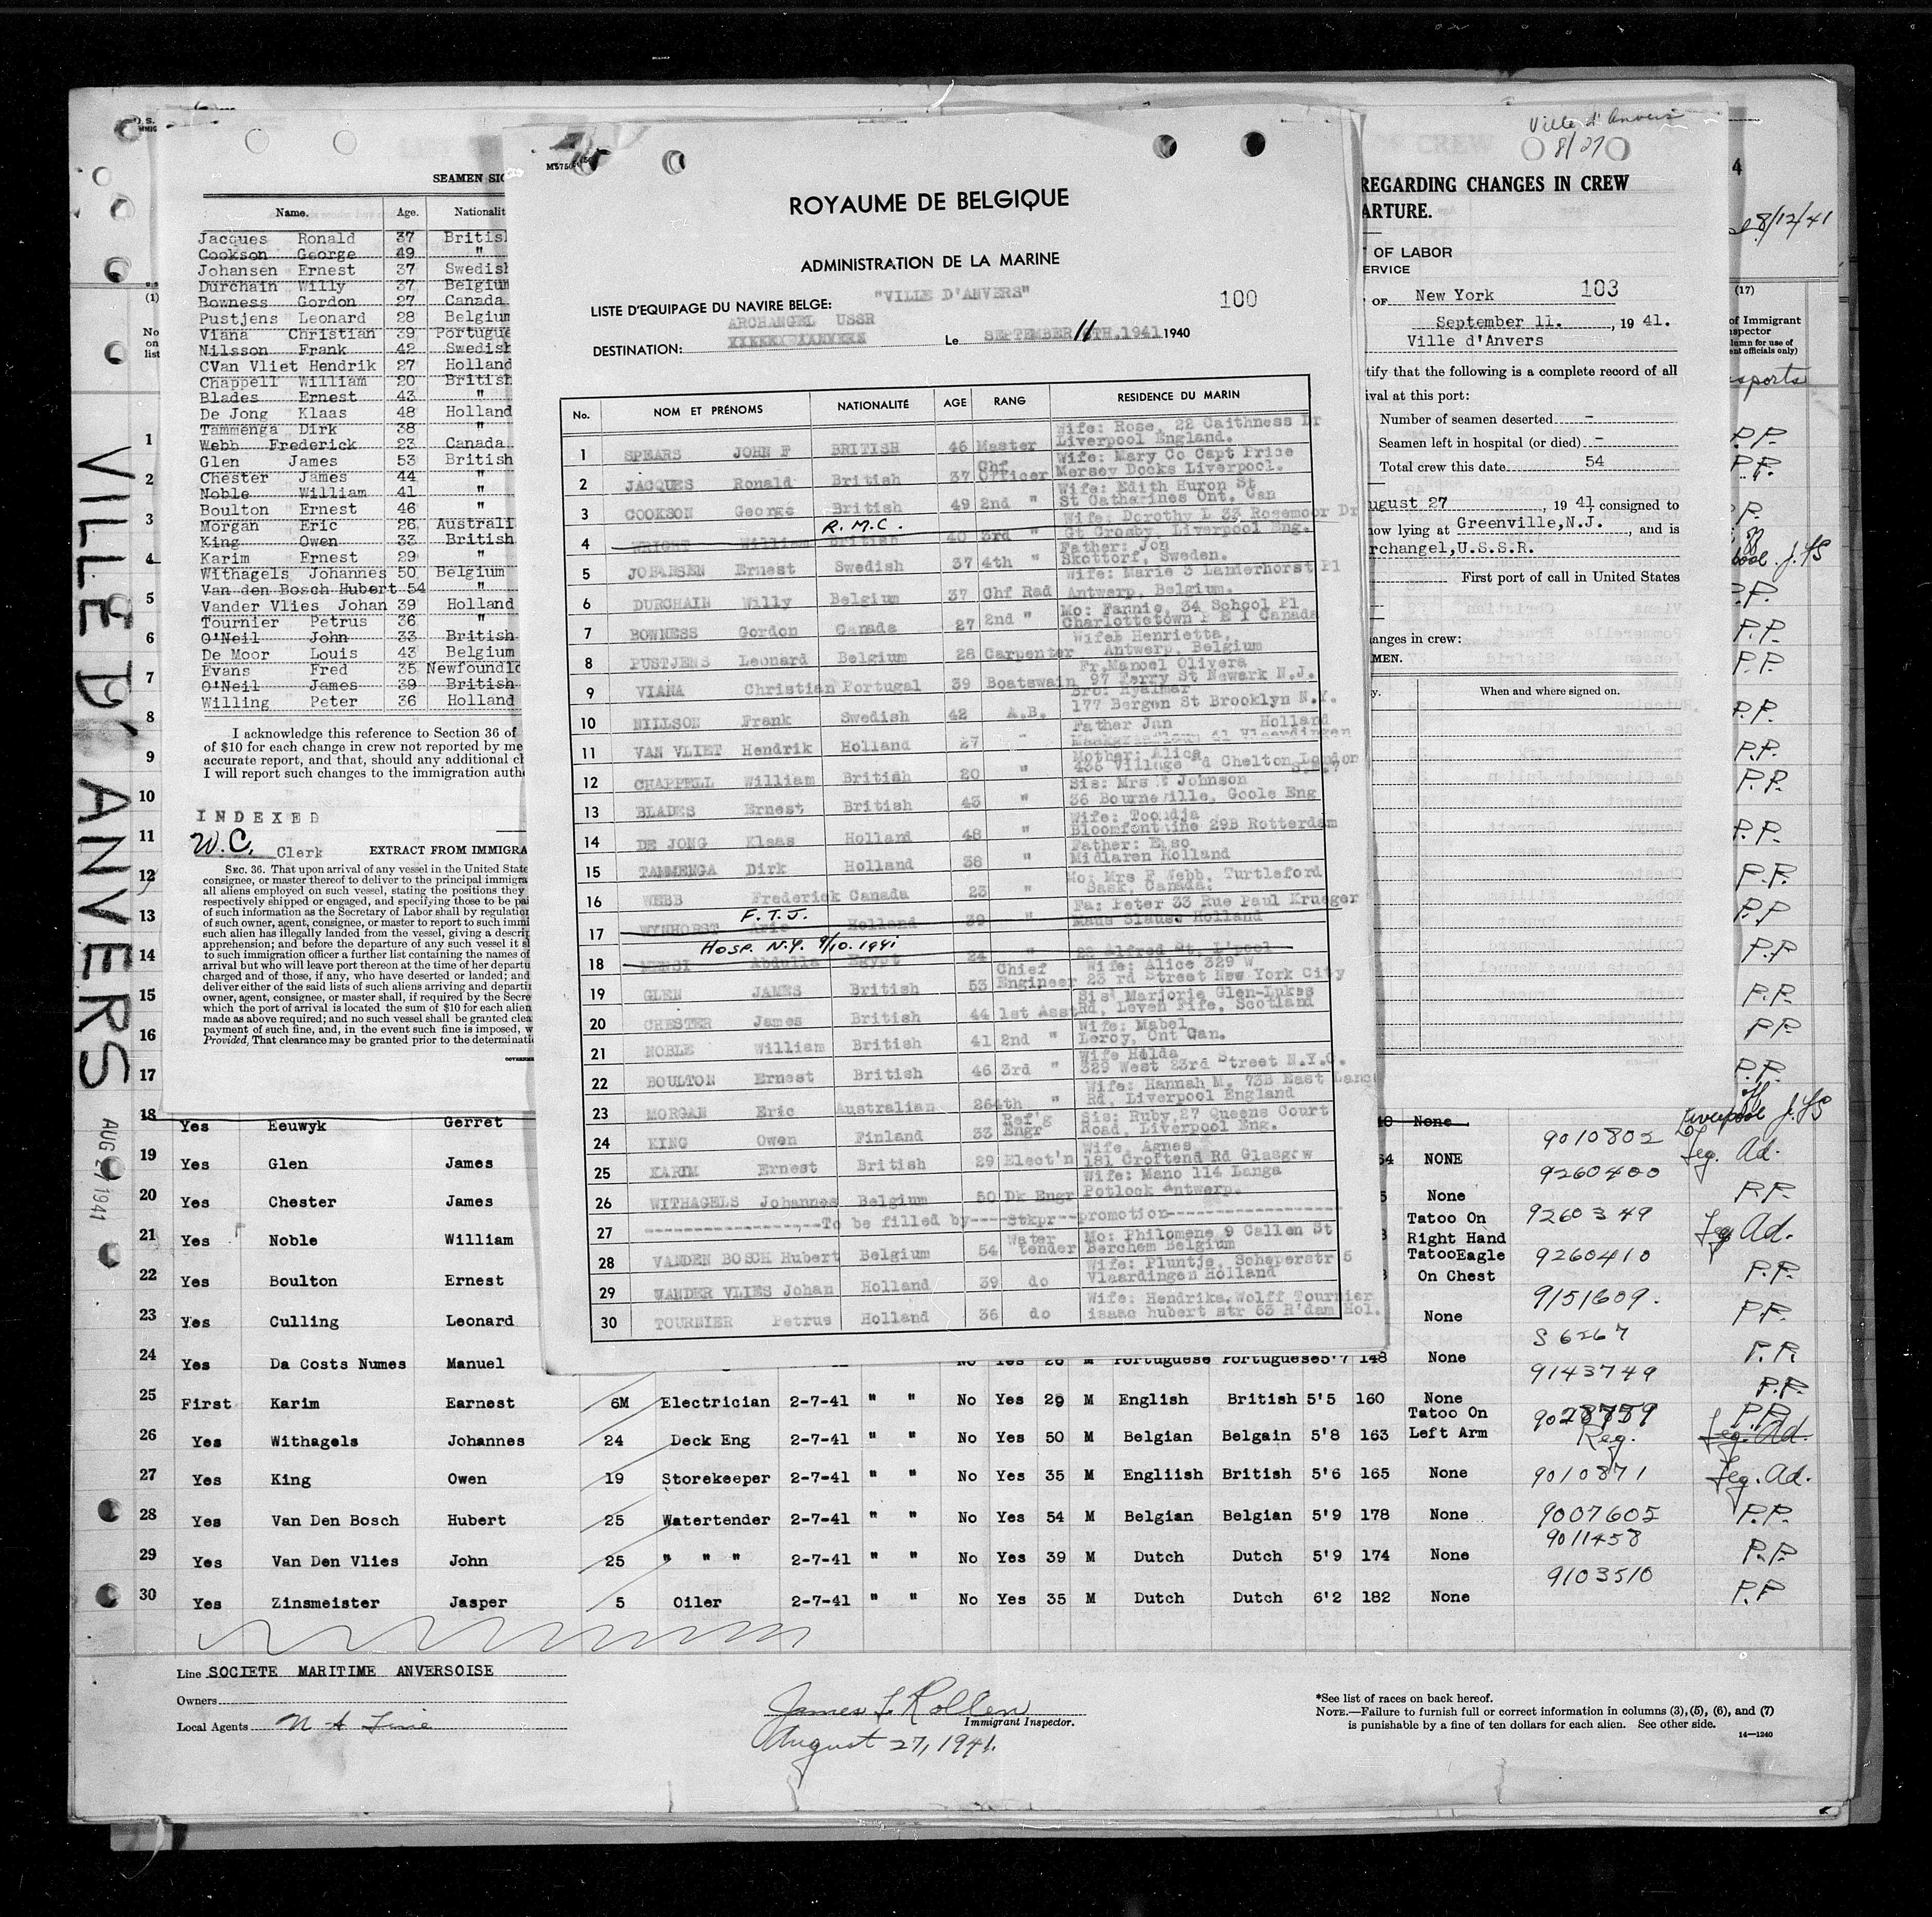 VILLE D'ANVERS
AUG 27 1941
SEAMEN SIG
Name. Age. Nationalit
Jacques Ronald 37 British
Cookson George 49 "
Johansen Ernest 37 Swedish
Durchain Willy 37 Belgium
Bowness Gordon 27 Canada
Pustjens Leonard 28 Belgium
Viana Christian 39 Portugue
Nilsson Frank 42 Swedish
CVan Vliet Hendrik 27 Holland
Chappell William 20 British
Blades Ernest 43 "
De Jong Klaas 48 Holland
Tammenga Dirk 38 "
Webb Frederick 23 Canada
Glen James 53 British
Chester James 44 "
Noble William 41 "
Boulton Ernest 46 "
Morgan Eric 26 Australi
King Owen 33 British
Karim Ernest 29 "
Withagels Johannes 50 Belgium
Van den Bosch Hubert 54 "
Vander Vlies Johan 39 Holland
Tournier Petrus 36 "
O'Neil John 33 British
De Moor Louis 43 Belgium
Evans Fred 35 Newfoundld
O'Neil James 39 British
Willing Peter 36 Holland
I acknowledge this reference to Section 36 of
of $10 for each change in crew not reported by me
accurate report, and that, should any additional ch
I will report such changes to the immigration autho
INDEXED
W.C. Clerk
EXTRACT FROM IMMIGRA
SEC. 36. That upon arrival of any vessel in the United State
consignee, or master thereof to deliver to the principal immigra
all aliens employed on such vessel, stating the positions they
respectively shipped or engaged, and specifying those to be pai
of such information as the Secretary of Labor shall by regulation
of such owner, agent, consignee, or master to report to such immi
such alien has illegally landed from the vessel, giving a descrip
apprehension; and before the departure of any such vessel it s
to such immigration officer a further list containing the names of
arrival but who will leave port thereon at the time of her departu
charged and of those, if any, who have deserted or landed; and
deliver either of the said lists of such aliens arriving and departin
owner, agent, consignee, or master shall, if required by the Secre
which the port of arrival is located the sum of $10 for each alien
made as above required; and no such vessel shall be granted clea
payment of such fine, and, in the event such fine is imposed, w
Provided, That clearance may be granted prior to the determinati
ROYAUME DE BELGIQUE
ADMINISTRATION DE LA MARINE
LISTE D'EQUIPAGE DU NAVIRE BELGE: "VILLE D'ANVERS" 100
ARCHANGEL USSR
DESTINATION: Le SEPTEMBER 11TH.1941 1940
No. NOM ET PRÉNOMS NATIONALITÉ AGE RANG RESIDENCE DU MARIN
1 SPEARS JOHN F BRITISH 46 Master Wife: Rose, 22 Caithness Dr
Liverpool England.
2 JACQUES Ronald British 37 Chf Officer Wife: Mary Co Capt Price
Mersey Docks Liverpool.
3 COOKSON George British 49 2nd " Wife: Edith Huron St
St Catharines Ont. Can
R.M.C.
4 WRIGHT William British 40 3rd " Wife: Dorothy L 33 Rosemoor Dr
Gt Crosby, Liverpool Eng.
5 JOHANSEN Ernest Swedish 37 4th " Father: Jon
Skottorf, Sweden.
6 DURCHAIN Willy Belgium 37 Chf Rad Wife: Marie 3 Lamerhorst Pl
Antwerp, Belgium.
7 BOWNESS Gordon Canada 27 2nd " Mo: Fannie, 34 School Pl
Charlottetown P E I Canada
8 PUSTJENS Leonard Belgium 28 Carpenter Wife: Henrietta,
Antwerp, Belgium
9 VIANA Christian Portugal 39 Boatswain Fr. Manoel Olivera
97 Ferry St Newark N.J.
10 NILLSON Frank Swedish 42 A.B. Bro: Hyalmar
177 Bergen St Brooklyn N.Y.
11 VAN VLIET Hendrik Holland 27 " Father Jan Holland
61 Vlaardingen
12 CHAPPELL William British 20 " Mother: Alica
436 Village Chelton London
13 BLADES Ernest British 43 " Sis: Mrs Johnson
36 Bourneville, Goole Eng
14 DE JONG Klaas Holland 48 " Wife: Tooudja
Bloomfontaine 29B Rotterdam
15 TAMMENGA Dirk Holland 38 " Father: Elso
Midlaren Holland
16 WEBB Frederick Canada 23 " Mo: Mrs F Webb, Turtleford
Sask, Canada.
F.T.J.
17 WYNHORST Arie Holland 39 " Fa: Peter 33 Rue Paul Krueger
Maus Slaus Holland
Hosp. N.Y. 9/10.1941
18 Abdulla Egypt 24 " 22 Alfred St. L'pool
19 GLEN JAMES British 53 Chief Engineer Wife: Alice 329 W
23 rd Street New York City
20 CHESTER James British 44 1st Asst Sis Marjorie Glen-Lukes
Rd, Leven Fife, Scotland
21 NOBLE William British 41 2nd " Wife: Mabel
Leroy, Ont Can.
22 BOULTON Ernest British 46 3rd " Wife Helda
329 West 23rd Street N.Y.C.
23 MORGAN Eric Australian 26 4th " Wife: Hannah M. 73B East Lanc
Rd, Liverpool England
24 KING Owen Finland 33 Ref'g Engr Sis: Ruby 27 Queens Court
Road, Liverpool Eng.
25 KARIM Ernest British 29 Elect'n Wife Agnes
181 Croftend Rd Glasgow
26 WITHAGELS Johannes Belgium 50 Dk Engr Wife: Mano 114 Langa
Potlock Antwerp.
27 To be filled by----Stkpr--promotion
28 VANDEN BOSCH Hubert Belgium 54 Water tender Mo: Philomene 9 Callen St
Berchem Belgium
29 VANDER VLIES Johan Holland 39 do Wife: Pluntje, Scheperstr 5
Vlaardingen Holland
30 TOURNIER Petrus Holland 36 do Wife: Hendrika Wolff Tournier
isaac hubert str 63 R'dam Hol.
Ville d'Anvers
8/27
REGARDING CHANGES IN CREW
ARTURE.
T OF LABOR
ERVICE
OF New York 103
September 11. , 19 41.
Ville d'Anvers
tify that the following is a complete record of all
ival at this port:
Number of seamen deserted -
Seamen left in hospital (or died) -
Total crew this date 54
ugust 27 , 19 41, consigned to
now lying at Greenville,N.J. , and is
rchangel,U.S.S.R.
First port of call in United States
anges in crew:
MEN.
y. When and where signed on.
4
8/12/41
(17)
of Immigrant
spector
lumn for use of
ent officials only)
(1)
No
on
list
18 Yes Eeuwyk Gerret None Liverpool J.S
19 Yes Glen James NONE 9010802 Seg. Ad.
20 Yes Chester James None 9260400 P.P.
21 Yes Noble William Tatoo On Right Hand 9260349 Seg Ad.
22 Yes Boulton Ernest Tatoo Eagle On Chest 9260410 P.P.
23 Yes Culling Leonard None 9151609. P.P.
24 Yes Da Costs Numes Manuel No Yes 26 M Portuguese Portuguese 5'7 148 None S 6267 P.P.
25 First Karim Earnest 6M Electrician 2-7-41 " " No Yes 29 M English British 5'5 160 None 9143749 P.P.
26 Yes Withagels Johannes 24 Deck Eng 2-7-41 " " No Yes 50 M Belgian Belgain 5'8 163 Tatoo On Left Arm Reg. P.P. Seg. Ad.
27 Yes King Owen 19 Storekeeper 2-7-41 " " No Yes 35 M Engliish British 5'6 165 None 9010871 Seg. Ad.
28 Yes Van Den Bosch Hubert 25 Watertender 2-7-41 " " No Yes 54 M Belgian Belgian 5'9 178 None 9007605 P.P.
29 Yes Van Den Vlies John 25 " " " 2-7-41 " " No Yes 39 M Dutch Dutch 5'9 174 None 9011458 P.P.
30 Yes Zinsmeister Jasper 5 Oiler 2-7-41 " " No Yes 35 M Dutch Dutch 6'2 182 None 9103510 P.P
Line SOCIETE MARITIME ANVERSOISE
Owners
Local Agents N A Line
James L. Rollen
Immigrant Inspector.
August 27, 1941.
*See list of races on back hereof.
NOTE.—Failure to furnish full or correct information in columns (3), (5), (6), and (7)
is punishable by a fine of ten dollars for each alien. See other side.
14—1240